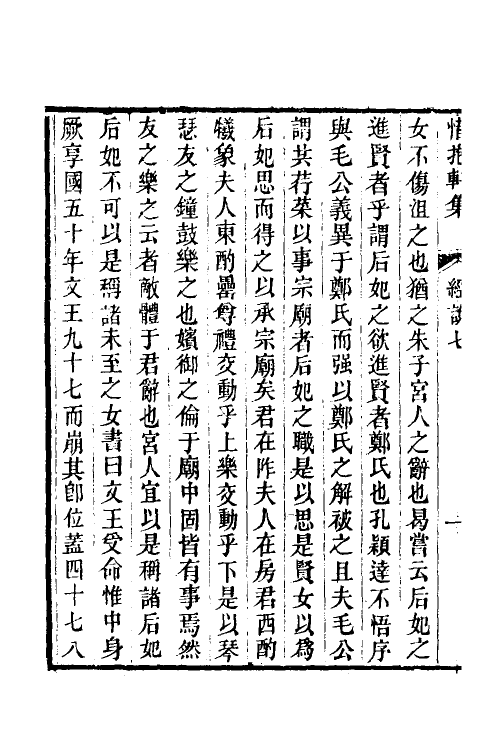 惜抱軒集 經說七 一
女不傷沮之也猶之朱子宮人之辭也曷嘗云后妃之
進賢者乎謂后妃之欲進賢者鄭氏也孔穎達不悟序
與毛公義異于鄭氏而强以鄭氏之解被之且夫毛公
謂共荇菜以事宗廟者后妃之職是以思是賢女以爲
后妃思而得之以承宗廟矣君在阼夫人在房君西酌
犧象夫人東酌罍尊禮交動乎上樂交動乎下是以琴
瑟友之鐘鼓樂之也嬪御之倫于廟中固皆有事焉然
友之樂之云者敵體于君辭也宮人宜以是稱諸后妃
后妃不可以是稱諸未至之女書曰文王受命惟中身
厥享國五十年文王九十七而崩其卽位蓋四十七八